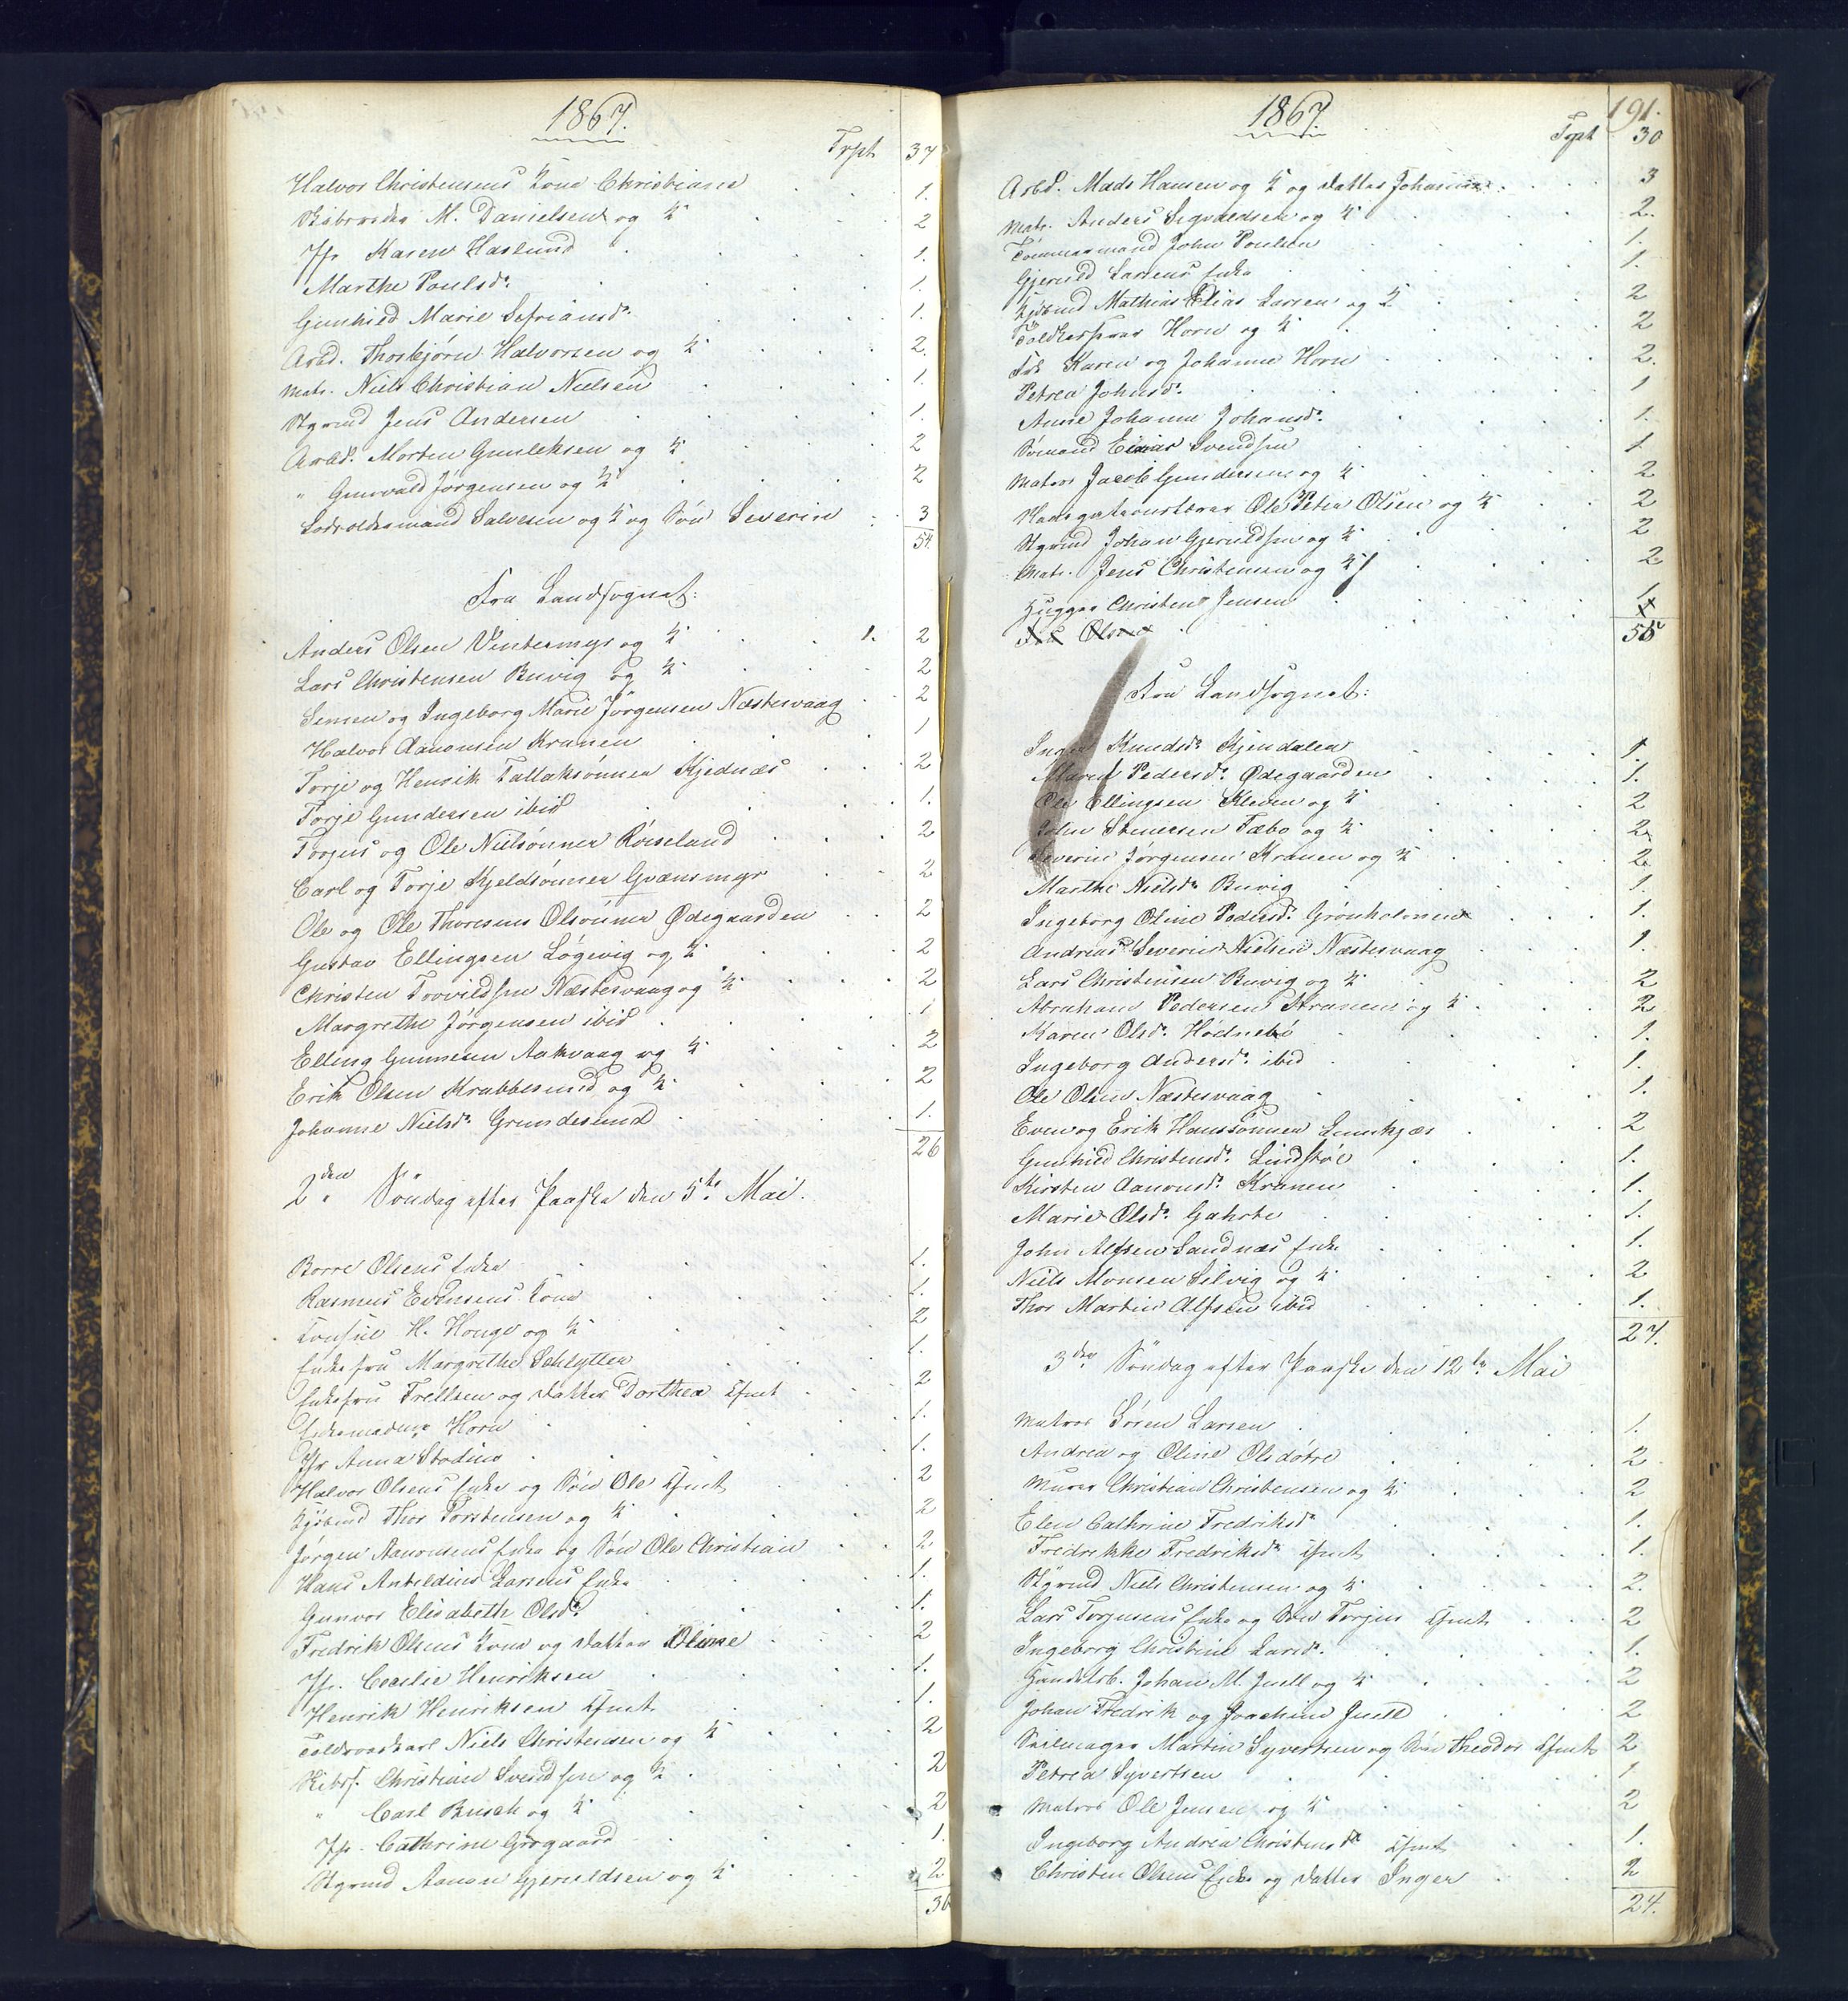 1867.
Trpt 37
Halvor Christensens Kone Christiane 1.
M. Danielsen og K. 2
Jfr Karen Haslund 1.
Marthe Poulsdr. 1.
Gunhild Marie Sefriansdr. 1.
Arbd. Thorbjørn Halvorsen og K. 2.
Matr. Niels Christian Nielsen 1.
Stgrmd Jens Andersen 1.
Arbd. Morten Gunleksen og K. 2
" Gunvald Jørgensen og K. 2
Salvesen og K. og Søn Severin 3
54.
Fra Landsognet:
Anders Olsen Vintermyr og K. 1. 2
Lars Christensen Buvig og K. 2
Simen og Ingeborg Marie Jørgensen Næstesvaag 2
Halvor Aanonsen Kranen 1
Torje og Henrik Tallaksønner Kjednæs 2
Torje Gundersen ibid 1.
Torjus og Ole Nielsønner Røiseland 2
Carl og Torje Kjeldsønner Gvænsmyr 2
Ole og Ole Thoresens Olsønner Ødegaarden 2
Gustav Ellingsen Løgevig og K. 2
Christen Torvildsen Næstesvaag og K. 2
Margrethe Jørgensen ibid 1
Elling Gunnesen Aakvaag og K. 2
Erik Olsen Krabbesund og K. 2
Johanne Nielsdr. Grundesund 1.
26
2den Søndag efter Paaske den 5te Mai.
Børre Olsens Enke 1.
Rasmus Evensens Kone 1.
Konsul H. Houge og K. 2
Enkefru Margrethe Schlytter 1.
Enkefru Trellsen og Datter Dorthea Kfmt 2
Enkemadme Horn 1.
Jfr Anna Stadius 1.
Halvor Olsens Enke og Søn Ole Kfmt 2
Kjøbmd Thor Torstensen og K. 2
Jørgen Aanonsens Enke og Søn Ole Christian 2
Hans Anteldius Larsens Enke 1.
Gunvor Elisabeth Olsdr. 1.
Fredrik Olsens Kone og Datter Oline 2
Jfr. Cecelie Henriksen 1.
Henrik Henriksen Kfmt 1.
Toldroerkarl Niels Christensen og K. 2
Skibsf. Christian Svendsen og K. 2
" Carl Busch og K. 2
Jfr. Cathrine Grøgaard 1.
Stgrmd Aanon Gjeruldsen og K. 2
36
1867
191.
Trpt 30
Arbd. Mads Hansen og K. og Datter Johanne 3
Matr. Anders Sigvaldsen og K. 2.
Tømmermand John Poulsen 1.
Gjeruld Larsens Enke 1.
Kjøbmd Mathias Elias Larsen og K. 2
Toldkasserer Horn og K. 2
Frk Karen og Johanne Horn 2.
Petrea Johnsdr. 1
Anne Johanne Johansdr. 1.
Sømand Einar Svendsen 1
Matros Jacob Gundersen og K. 2
Ole Peter Olsen og K. 2
Stgrmd Johan Gjeruldsen og K. 2
Matr. Jens Christensen og K. 2
Hugger Christen Jensen 1
55
Fra Landsognet:
Inger Knudsdr. Kjendalen 1.
Maren Pedersdr. Ødegaarden 1.
Ole Ellingsen Kleven og K. 2
John Stenersen Tæbo og K. 2
Severin Jørgensen Kranen og K. 2
Marthe Nielsdr. Buvig 1.
Ingeborg Oline Pedersdr. Grønholmen 1.
Andreas Severin Nielsen Næstesvaag 1.
Lars Christensen Buvig og K. 2
Abraham Pedersen Kranen og K. 2
Karen Olsdr. Hodnebø 1.
Ingeborg Andersdr. ibid 1.
Ole Olsen Næstesvaag 1.
Even og Erik Hanssønner Ennekjær 2
Gunhild Christensdr. Lindstøl 1.
Kirsten Aanonsdr. Kranen 1.
Marie Olsdr. Gahrte 1.
John Alfsen Sandnæs Enke 1.
Niels Monsen Silvig og K. 2
Thor Martin Alfsen ibid 1.
27.
3die Søndag efter Paaske den 12te Mai
Matros Søren Larsen 1.
Andrea og Oline Olsdøtre 2
Murer Christian Christensen og K. 2
Elen Cathrine Fredriksdr. 1.
Fredrikke Fredriksdr. Kfmt 1.
Stgrmd Niels Christensen og K. 2.
Lars Torjusens Enke og Søn Torjus Kfmt 2
Ingeborg Christine Larsdr. 1.
Handelsb. Johan M. Juell og K. 2
Johan Fredrik og Joachim Juell 2
Seilmager Martin Syvertsen og Søn Theodor Kfmt 2
Petrea Syvertsen 1
Matros Ole Jensen og K. 2
Ingeborg Andrea Christensdr. Kfmt 1.
Christen Olsens Enke og Datter Inger 2
24.